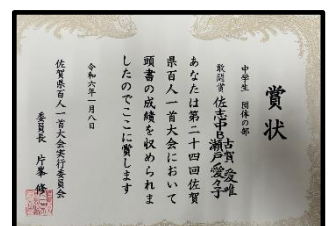 賞状
中学生 団体の部
敢闘賞 佐志中B 古賀 愛唯
瀬戸 愛々子
あなたは第二十四回佐賀
県百人一首大会において
頭書の成績を収められま
したのでここに賞します
令和六年一月八日
佐賀県百人一首大会実行委員会
委員長 片峯 修